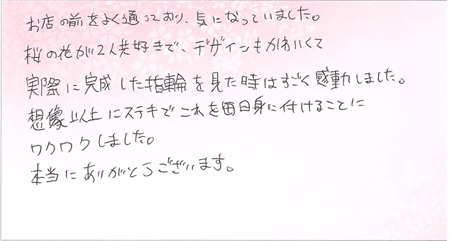 お店の前をよく通っており、気になっていました。
桜の花が2人共好きで、デザインもかわいくて
実際に完成した指輪を見た時はすごく感動しました。
想像以上にステキでこれを毎日身に付けることに
ワクワクしました。
本当にありがとうございます。